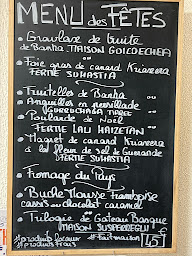 MENU des FÊTES
• Gravlaxe de truite
de Banka MAISON GOICOECHEA
• Foie gras de canard Kriaxera
FERME SUKASTIA
• Truitelles de Banka
• Anguilles en persillade
• Poularde de Noël
FERME LAU HAIZETAN
• Magret de canard Kriaxera
à la fleur de sel de Guérande
FERME SUKASTIA
• Fromage du Pays
• Buche Mousse Framboise
cassis au chocolat caramel
• Trilogie de Gateau Basque
MAISON
#produits locaux #faitmaison
#produits frais 45€